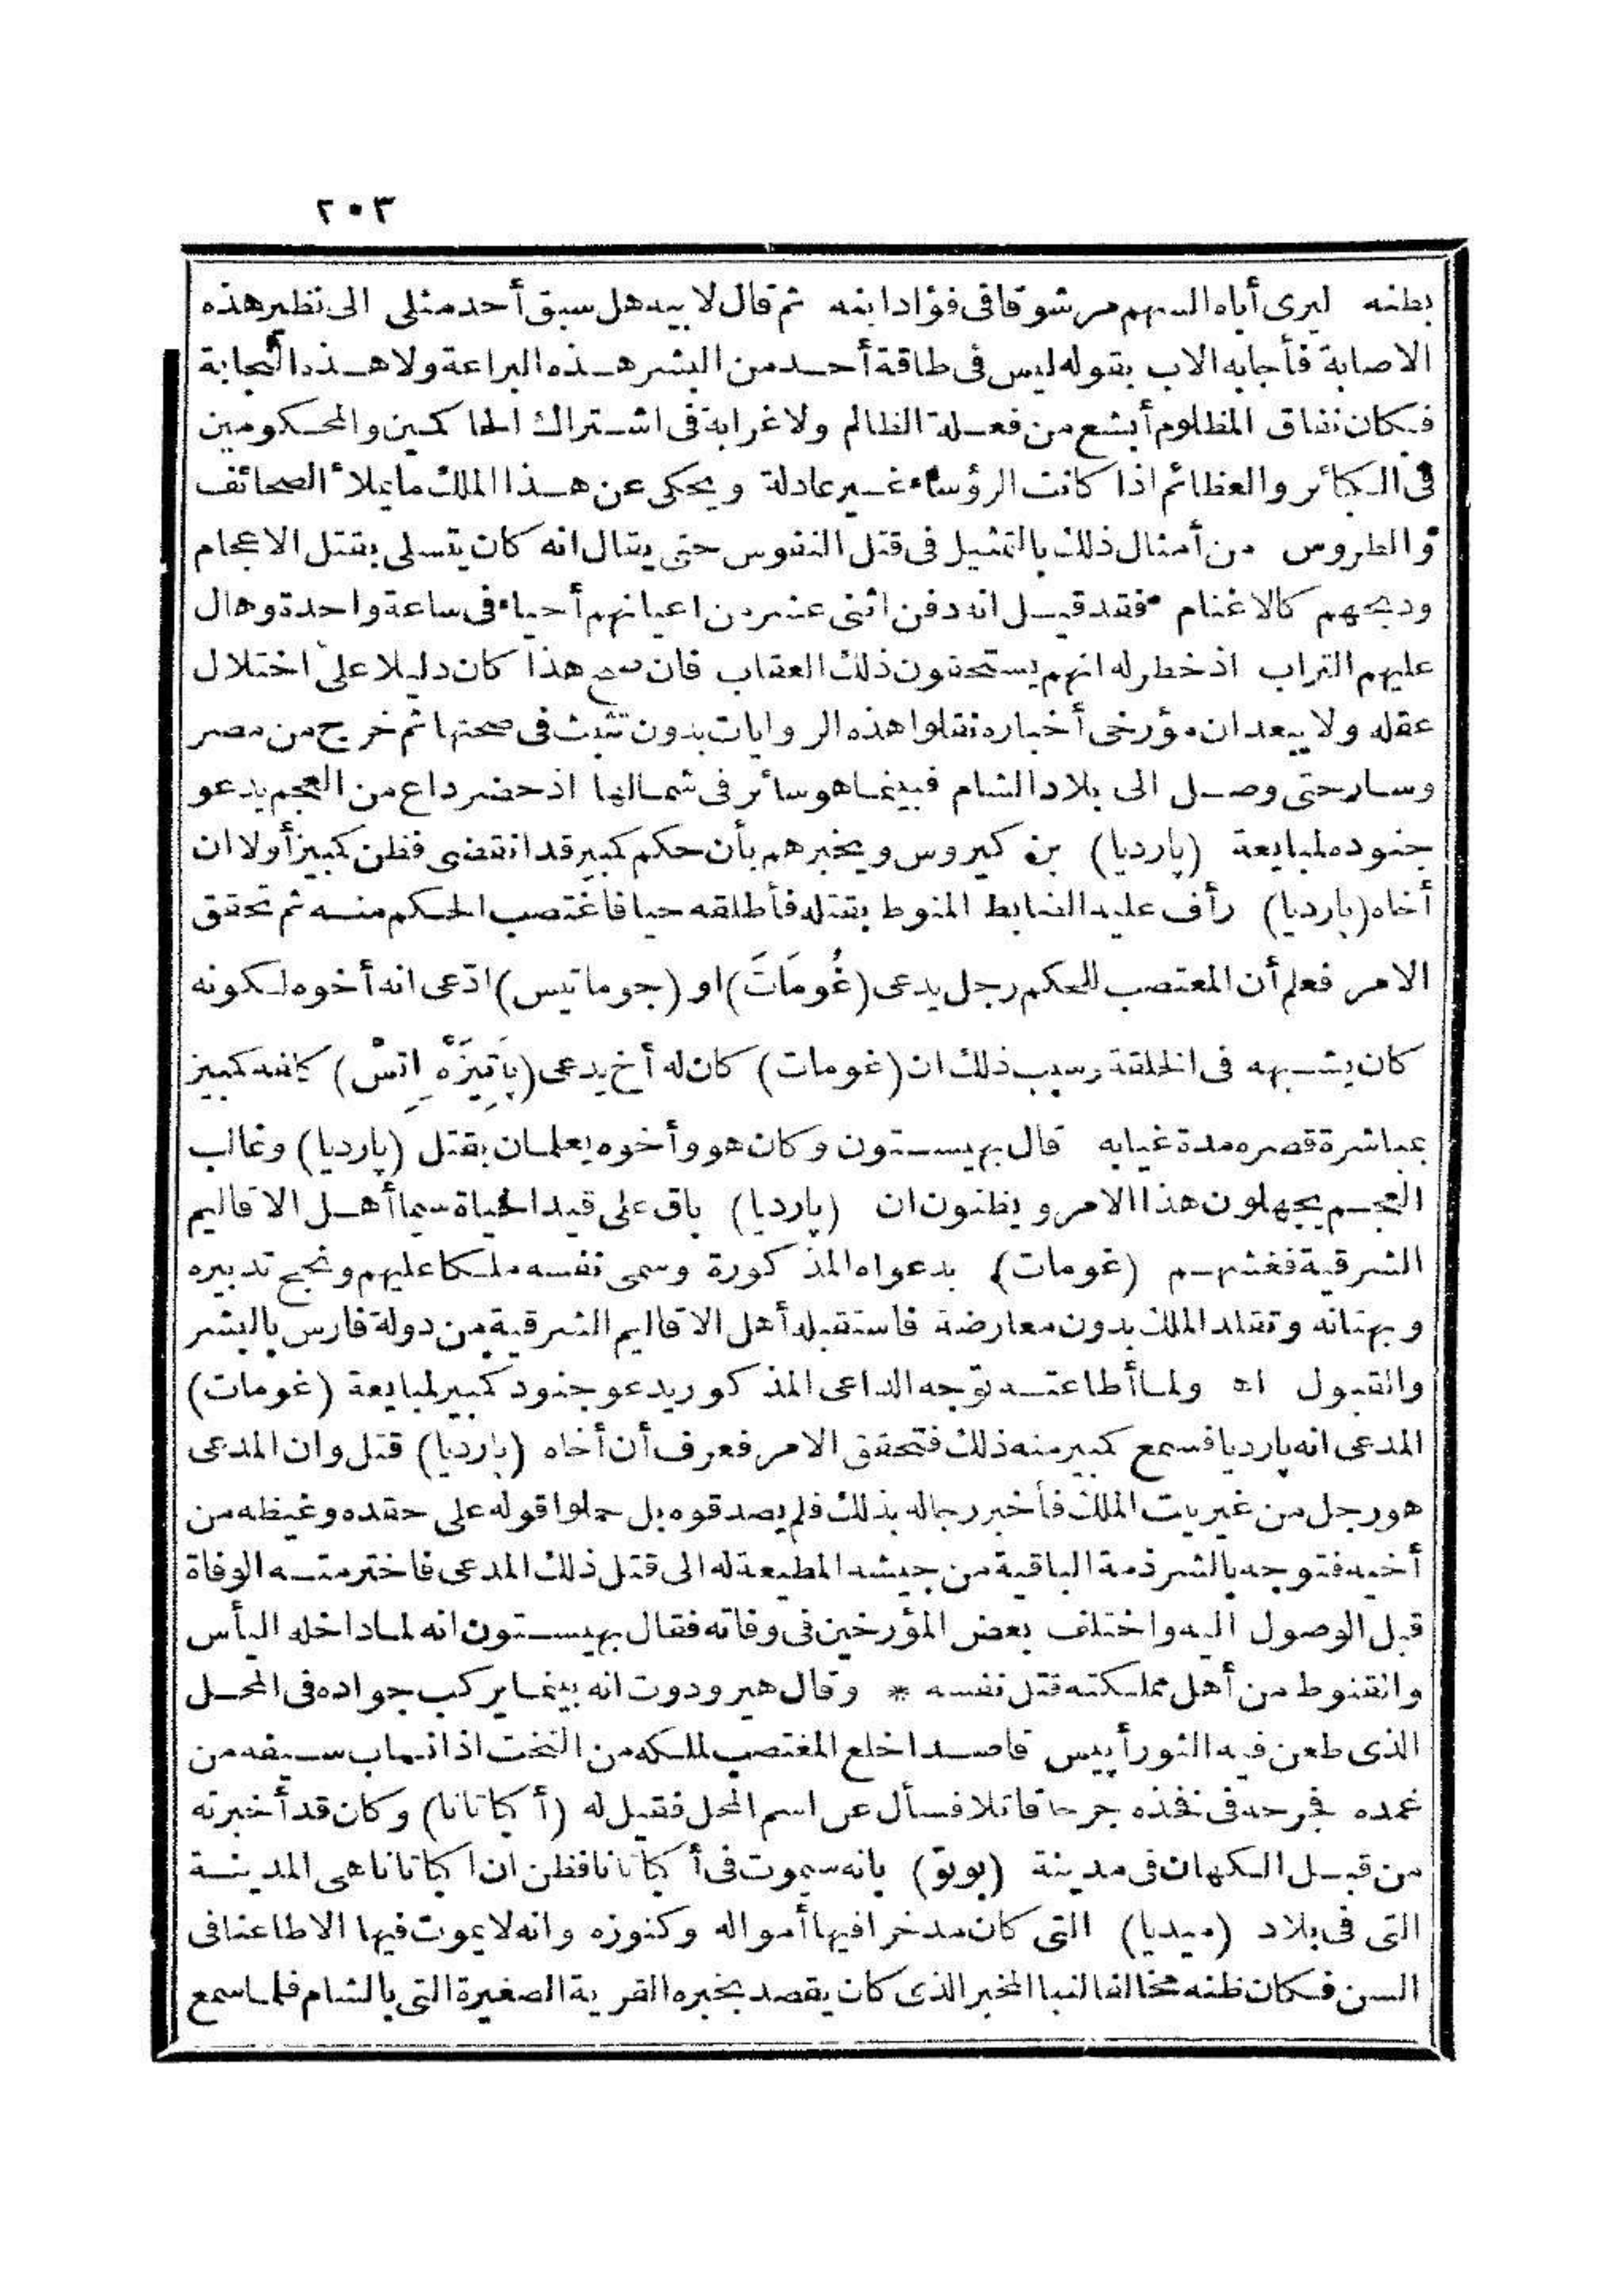 ٢٠٣
بطنه ليرى أباه السهم مرشوقا فى فؤاد ابنه ثم قال لابيه هل سبق أحد مثلى الى نظير هذه
الاصابة فأجابه الاب بقوله ليس فى طاقة أحد من البشر هذه البراعة ولا هذه النجابة
فكان نفاق المظلوم أبشع من فعلة الظالم ولا غرابة فى اشتراك الحاكمين والمحكومين
فى الكبائر والعظائم اذا كانت الرؤساء غير عادلة ويحكى عن هذا الملك ما يملأ الصحائف
والطروس من أمثال ذلك بالتمثيل فى قتل النفوس حتى يقال انه كان يتسلى بقتل الاعجام
وذبحهم كالاغنام فقد قيل انه دفن اثنى عشر من اعيانهم أحياء فى ساعة واحدة وهال
عليهم التراب اذ خطر له انهم يستحقون ذلك العقاب فان صح هذا كان دليلا على اختلال
عقله ولا يبعد ان مؤرخى أخباره نقلوا هذه الروايات بدون تثبت فى صحتها ثم خرج من مصر
وسار حتى وصل الى بلاد الشام فبينما هو سائر فى شمالها اذ حضر داع من العجم يدعو
جنوده لمبايعة (پارديا) بن كيروس ويخبرهم بأن حكم كمبيز قد انقضى فظن كمبيز أولا ان
أخاه (پارديا) رأف عليه الضابط المنوط بقتله فأطلقه حيا فاغتصب الحكم منه ثم تحقق
الامر فعلم أن المغتصب للحكم رجل يدعى (غُومَاتَ) او (جوماتيس) ادّعى انه أخوه لكونه
كان يشبهه فى الخلقة وسبب ذلك ان (غومات) كان له أخ يدعى (پَاتِيزَهْ اِتِسْ) كلفه كمبيز
بمباشرة قصره مدة غيابه قال بهيستون وكان هو وأخوه يعلمان بقتل (پارديا) وغالب
العجم يجهلون هذا الامر ويظنون ان (پارديا) باق على قيد الحياة سيما أهل الاقاليم
الشرقية فغشهم (غومات) بدعواه المذكورة وسمى نفسه ملكا عليهم ونجح تدبيره
وبهتانه وتقلد الملك بدون معارضة فاستقبله أهل الاقاليم الشرقية من دولة فارس بالبشر
والقبول اه ولما أطاعته توجه الداعى المذكور يدعو جنود كمبيز لمبايعة (غومات)
المدعى انه پارديا فسمع كمبيز منه ذلك فتحقق الامر فعرف أن أخاه (پارديا) قتل وان المدعى
هو رجل من غير بيت الملك فأخبر رجاله بذلك فلم يصدقوه بل حملوا قوله على حقده وغيظه من
أخيه فتوجه بالشرذمة الباقية من جيشه المطيعة له الى قتل ذلك المدعى فاخترمته الوفاة
قبل الوصول اليه واختلف بعض المؤرخين فى وفاته فقال بهيستون انه لما داخله اليأس
والقنوط من أهل مملكته قتل نفسه * وقال هيرودوت انه بينما يركب جواده فى المحل
الذى طعن فيه الثور أپيس قاصدا خلع المغتصب لملكه من التخت اذ انساب سيفه من
غمده فجرحه فى فخذه جرحا قاتلا فسأل عن اسم المحل فقيل له (أكباتانا) وكان قد أخبرته
من قبل الكهان فى مدينة (بوتو) بانه سيموت فى أكباتانا فظن ان اكباتانا هى المدينة
التى فى بلاد (ميديا) التى كان مدخرا فيها أمواله وكنوزه وانه لا يموت فيها الا طاعنا فى
السن فكان ظنه مخالفا لنبا المخبر الذى كان يقصد بخبره القرية الصغيرة التى بالشام فلما سمع